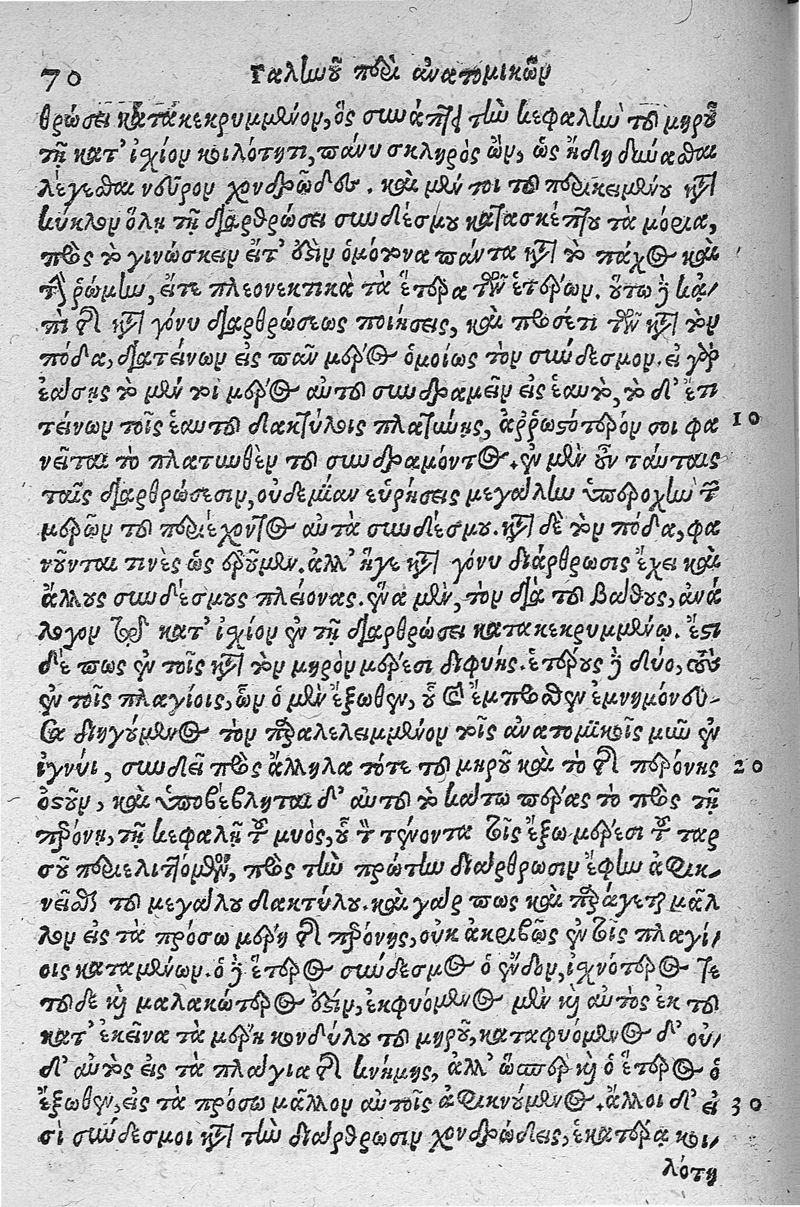 70 Γαλίωοῦ περὶ ἀνατομικῶν
θρώσει κατακεκρυμμένον, ὃς συνάπτει τὴν κεφαλὴν τοῦ μηροῦ
τῇ κατ' ἰχίον κοιλότητι, πάνυ σκληρὸς ὢν, ὡς ἤδη δύναϑαι
λέγεϑαι νεῦρον χονδρῶδες. καὶ μέν τοι τοῦ περικειμένου κατὰ
κύκλον ὅλῃ τῇ διαρθρώσει συνδέσμου κατασκέπτου τὰ μόρια,
πρὸς τὸ γινώσκειν εἴτ' ὁμότονα πάντα κατὰ τὸ πάχος καὶ
τὴν ῥώμην, εἴτε πλεονεκτικὰ τὰ ἕτερα τῶν ἑτέρων. οὕτω δὲ κἀ-
πὶ τῆς κατὰ γόνυ διαρθρώσεως ποιήσεις, καὶ προσέτι τῶν κατὰ τὸν
πόδα, διατείνων εἰς πᾶν μέρος ὁμοίως τὸν σύνδεσμον. εἰ γὰρ
ἐάσῃς τὸ μέν τι μέρος αὐτοῦ συνδραμεῖν εἰς ἑαυτὸ, τὸ δ' ἔτι
τείνων τοῖς ἑαυτοῦ δακτύλοις πλατύνῃς, ἀῤῥωστότερόν σοι φα 10
νεῖται τὸ πλατυνθὲν τοῦ συνδραμόντος. ἐν μὲν οὖν ταύταις
ταῖς διαρθρώσεσιν, οὐδεμίαν εὑρήσεις μεγάλην ὑπεροχὴν τῶν
μερῶν τοῦ περιέχοντος αὐτὰ συνδέσμου. κατὰ δὲ τὸν πόδα, φα
νοῦνται τινὲς ὡς ἐροῦμεν. ἀλλ' ἥγε κατὰ γόνυ διάρθρωσις ἔχει καὶ
ἄλλους συνδέσμους πλείονας. ἕνα μὲν, τὸν διὰ τοῦ βάθους, ἀνά
λογον τῷ κατ' ἰχίον ἐν τῇ διαρθρώσει κατακεκρυμμένῳ. ἔστι
δέ πως ἐν τοῖς κατὰ τὸν μηρὸν μέρεσι διφυής. ἑτέρους δὲ δύο, τοὺς
ἐν τοῖς πλαγίοις, ὧν ὁ μὲν ἔξωθεν, οὗ καὶ ἔμπροϑεν ἐμνημόνευ-
σα διηγούμενος τὸν παραλελειμμένον τοῖς ἀνατομικοῖς μῦν ἐν
ἰγνύι, συνδεῖ πρὸς ἄλληλα τότε τοῦ μηροῦ καὶ τὸ τῆς περόνης 20
ὀστοῦν, καὶ ὑποβέβληται δ' αὐτοῦ τὸ κάτω πέρας τὸ πρὸς τῇ
περόνῃ, τῇ κεφαλῇ τοῦ μυὸς, οὗ τὸν τένοντα τοῖς ἔξω μέρεσι τοῦ ταρ
σοῦ περιελιττόμενον, πρὸς τὴν πρώτην διάρθρωσιν ἔφην ἀφικ-
νεῖϑαι τοῦ μεγάλου δακτύλου. καὶ γάρ πως καὶ παράγεται μᾶλ
λον εἰς τὰ πρόσω μέρη τῆς περόνης, οὐκ ἀκριβῶς ἐν τοῖς πλαγί-
οις καταμένων. ὁ δὲ ἕτερος σύνδεσμος ὁ ἔνδον, ἰχνότερος τε
τοῦδε καὶ μαλακώτερος ἐστὶν, ἐκφυόμενος μὲν καὶ αὐτὸς ἐκ τοῦ
κατ' ἐκεῖνα τὰ μέρη κονδύλου τοῦ μηροῦ, καταφυόμενος δ' οὐ-
δ' αὐτὸς εἰς τὰ πλάγια τῆς κνήμης, ἀλλ' ὥσπερ καὶ ὁ ἕτερος ὁ
ἔξωθεν, εἰς τὰ πρόσω μᾶλλον αὐτοῖς ἀφικνούμενος. ἄλλοι δ' εἰ 30
σὶ σύνδεσμοι κατὰ τὴν διάρθρωσιν χονδρώδεις, ἑκατέρᾳ κοι-
λότη